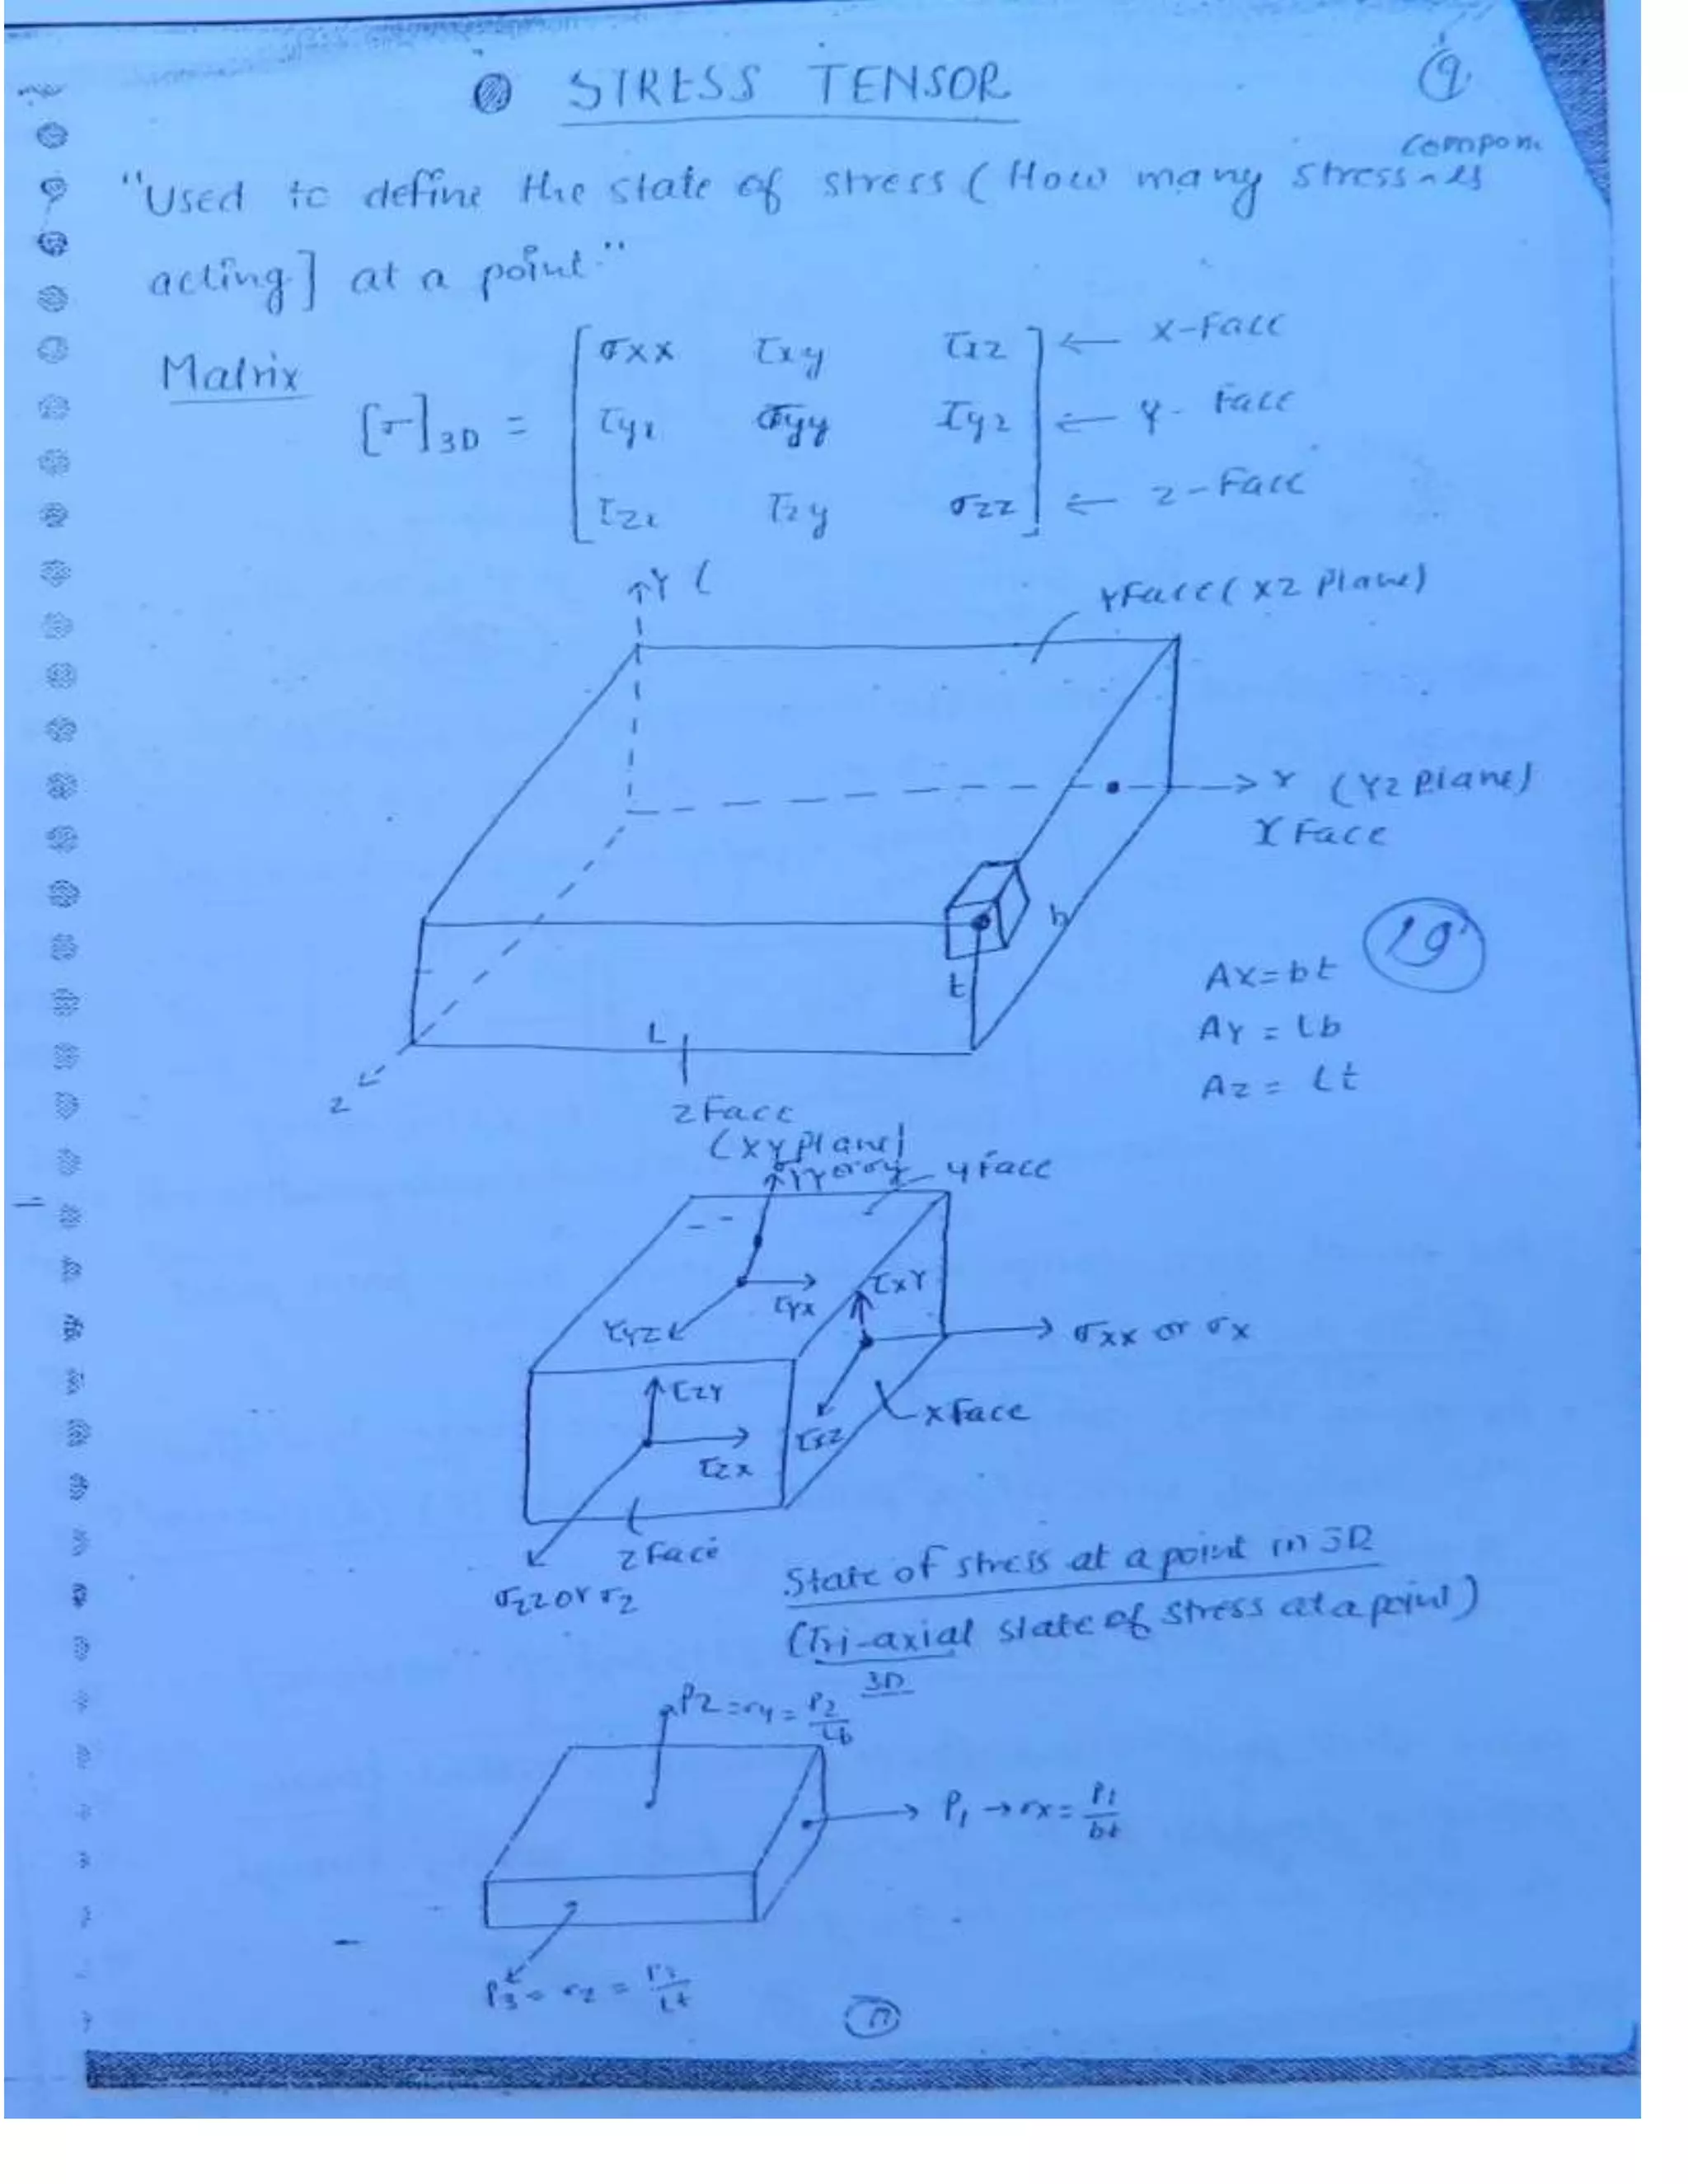 STRESS TENSOR
9
compon
"Used to define the state of stress (How many stresses
acting] at a point."
Matrix
[σ]3D =
σxx τxy τxz ← x-Face
τyx σyy τyz ← y-Face
τzx τzy σzz ← z-Face
Y
YFace (xz Plane)
(Yz Plane)
X Face
b
t
L
z
z Face
(XY plane)
19
Ax = bt
Ay = Lb
Az = Lt
σyy or σy
y Face
τyx
τyz
τxy
σxx or σx
τxz
x Face
τzy
τzx
z Face
σzz or σz
State of stress at a point in 3D
(Tri-axial state of stress at a point)
3D
P2 = σy = P2/Lb
P1 → σx = P1/bt
P3 = σz = P3/Lt